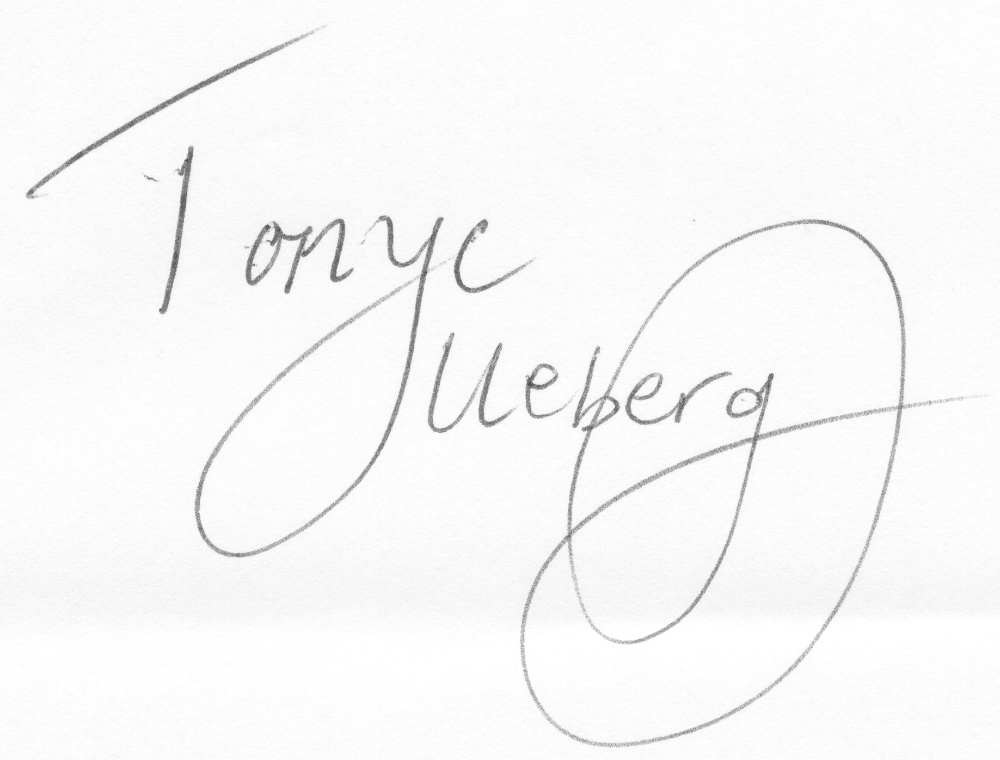 Tonyc
Ueberg